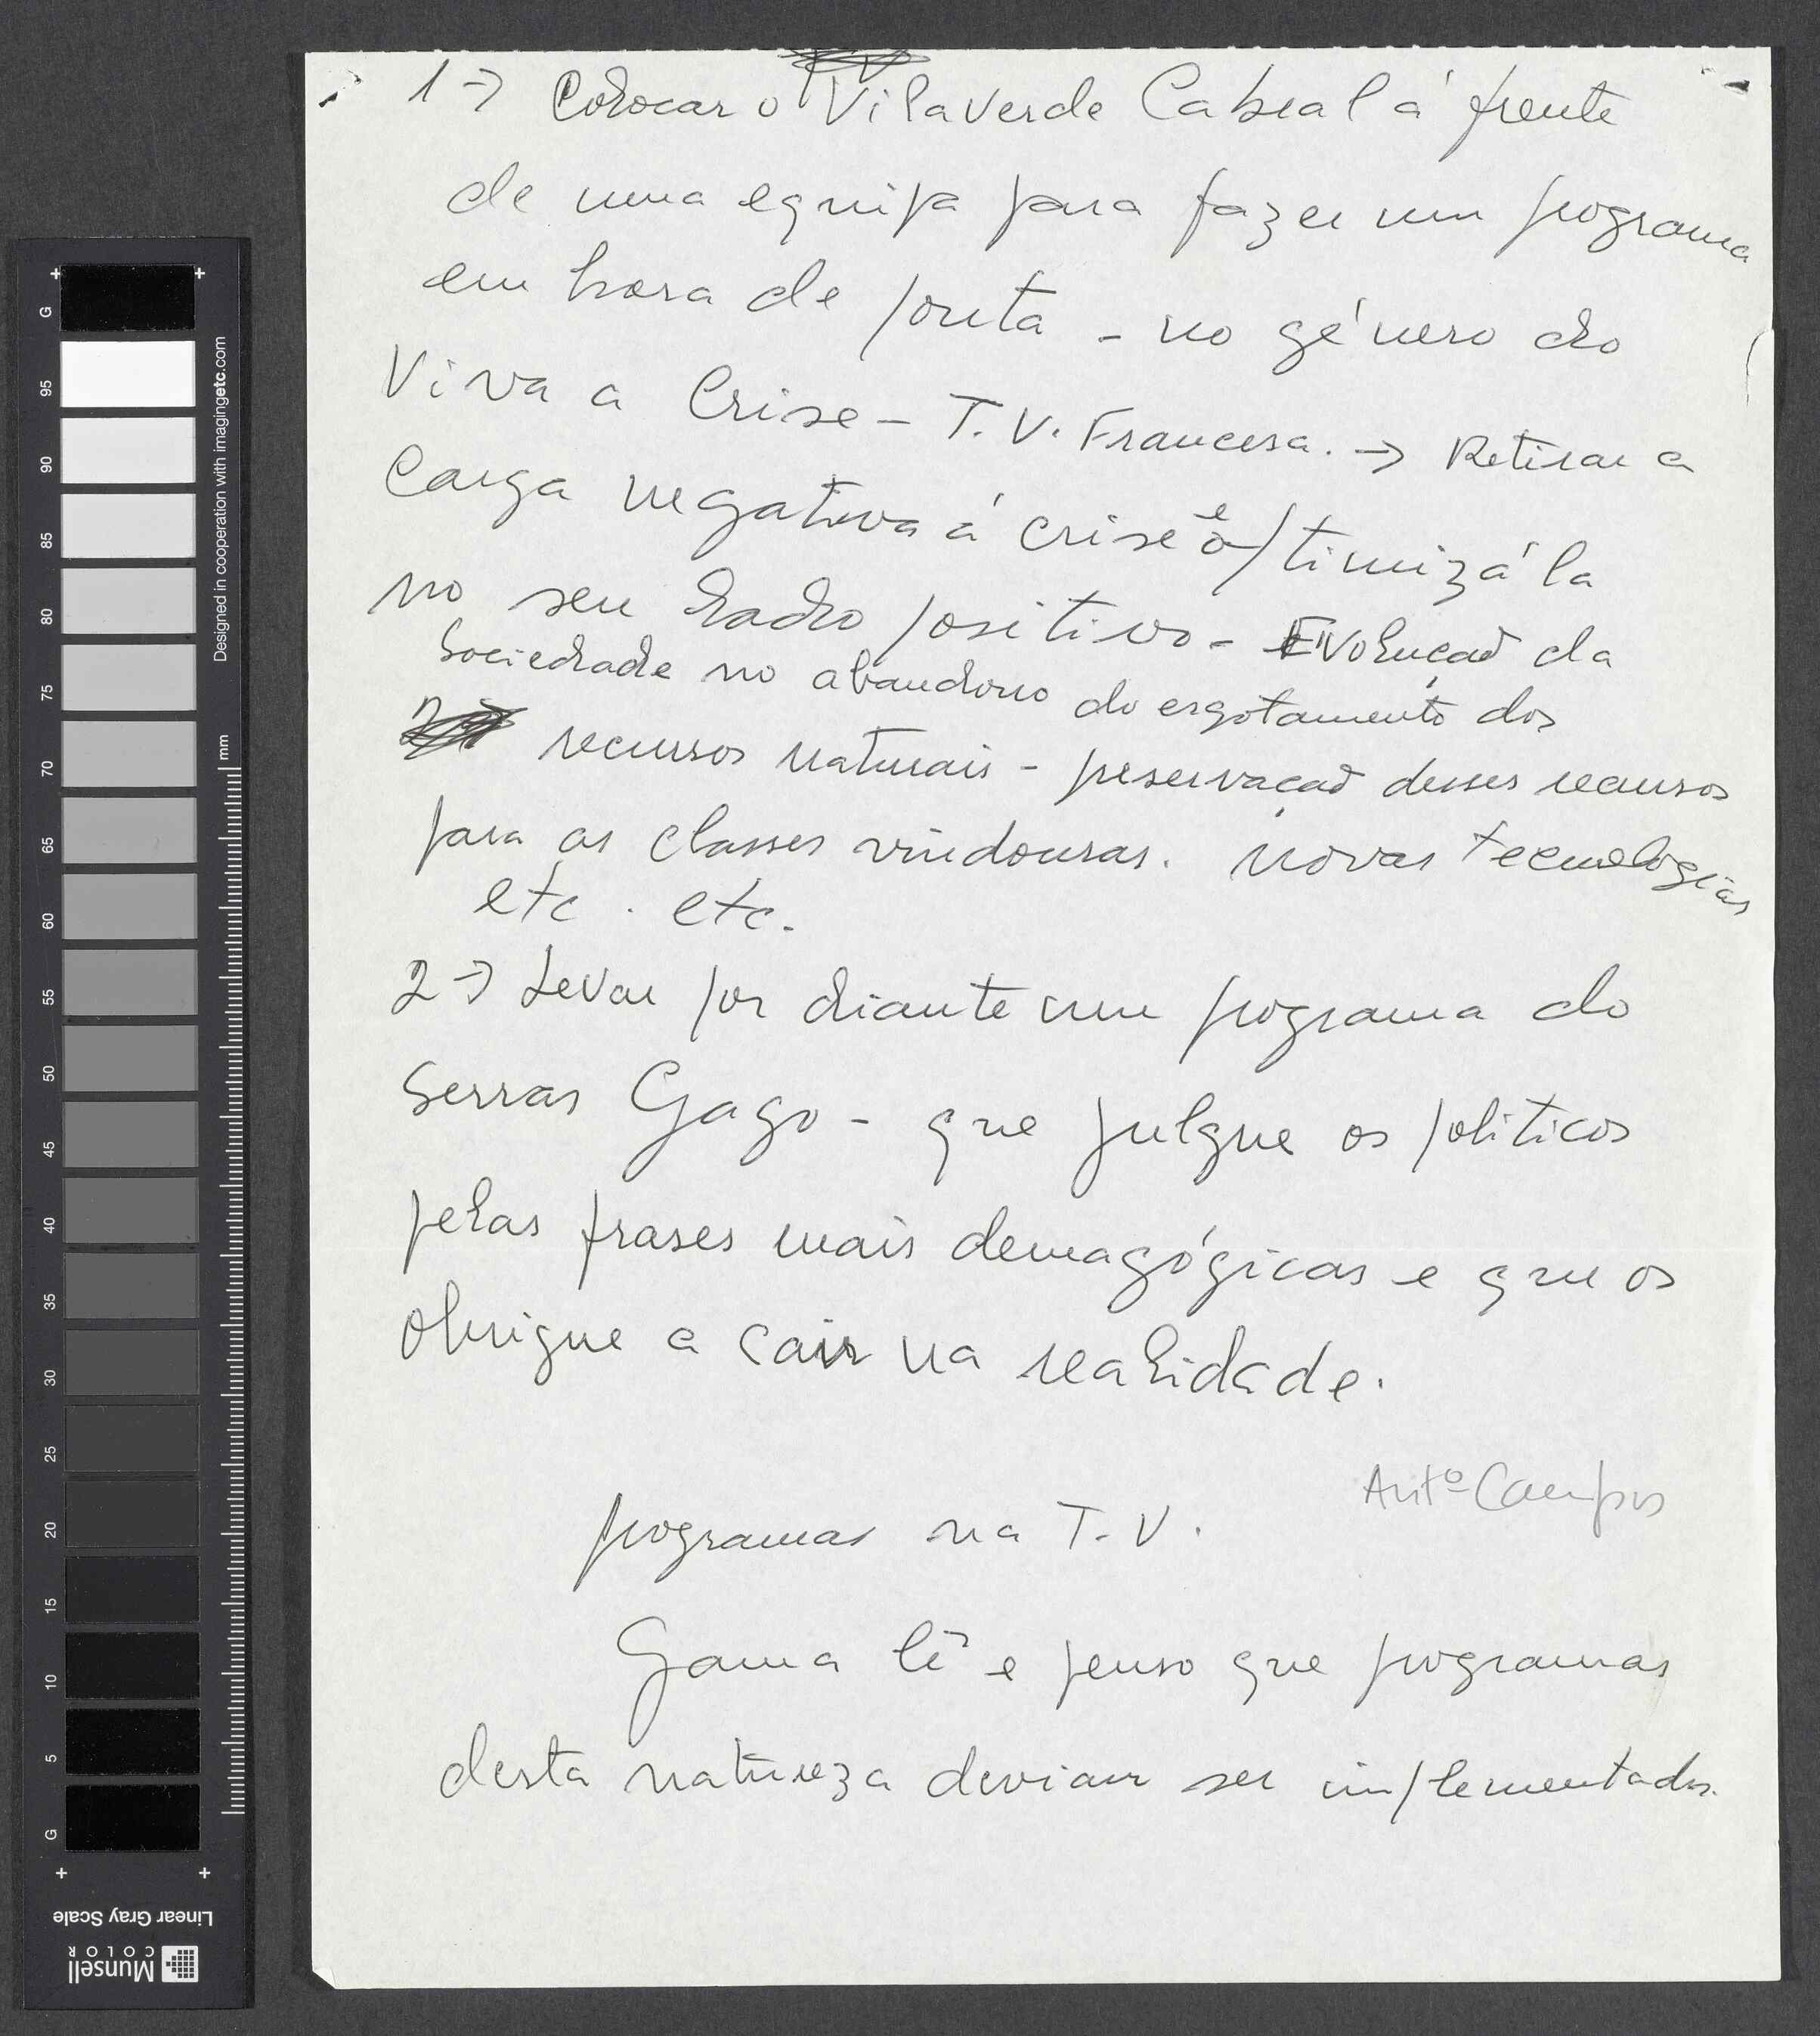 1 → Colocar o Vilaverde Cabral á frente
de uma equipa para fazer um programa
em hora de ponta - no género do
Viva a Crise - T.V. Francesa. → Retirar a
carga negativa á crise e optimizá'la
no seu lado positivo - Evolução da
Sociedade no abandono do esgotamento dos
recursos naturais - preservação desses recursos
para as classes vindouras. novas tecnologias
etc. etc.
2 → Levar por diante um programa do
Serras Gago - que julgue os politicos
pelas frases mais demagógicas e que os
obrigue a cair na realidade.
Antº Campos
programas na T.V.
Gama lê e penso que programas
desta natureza deviam ser implementados.
G
95
90
85
80
75
70
65
60
55
50
45
40
35
30
25
20
15
10
5
G
mm
Designed in cooperation with imagingetc.com
Linear Gray Scale
Munsell
COLOR